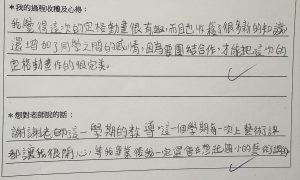 *我的過程收穫及心得:
我覺得這次的定格動畫很有趣,而且也收穫了很多新的知識,
還增加了同學之間的感情,因為要團結合作,才能把這次的
定格動畫作的很完美。
*想對老師說的話:
謝謝老師這一學期的教導,這個學期每一次上藝術課
都讓我很開心,等我畢業後我一定還會在想起國小的藝術課